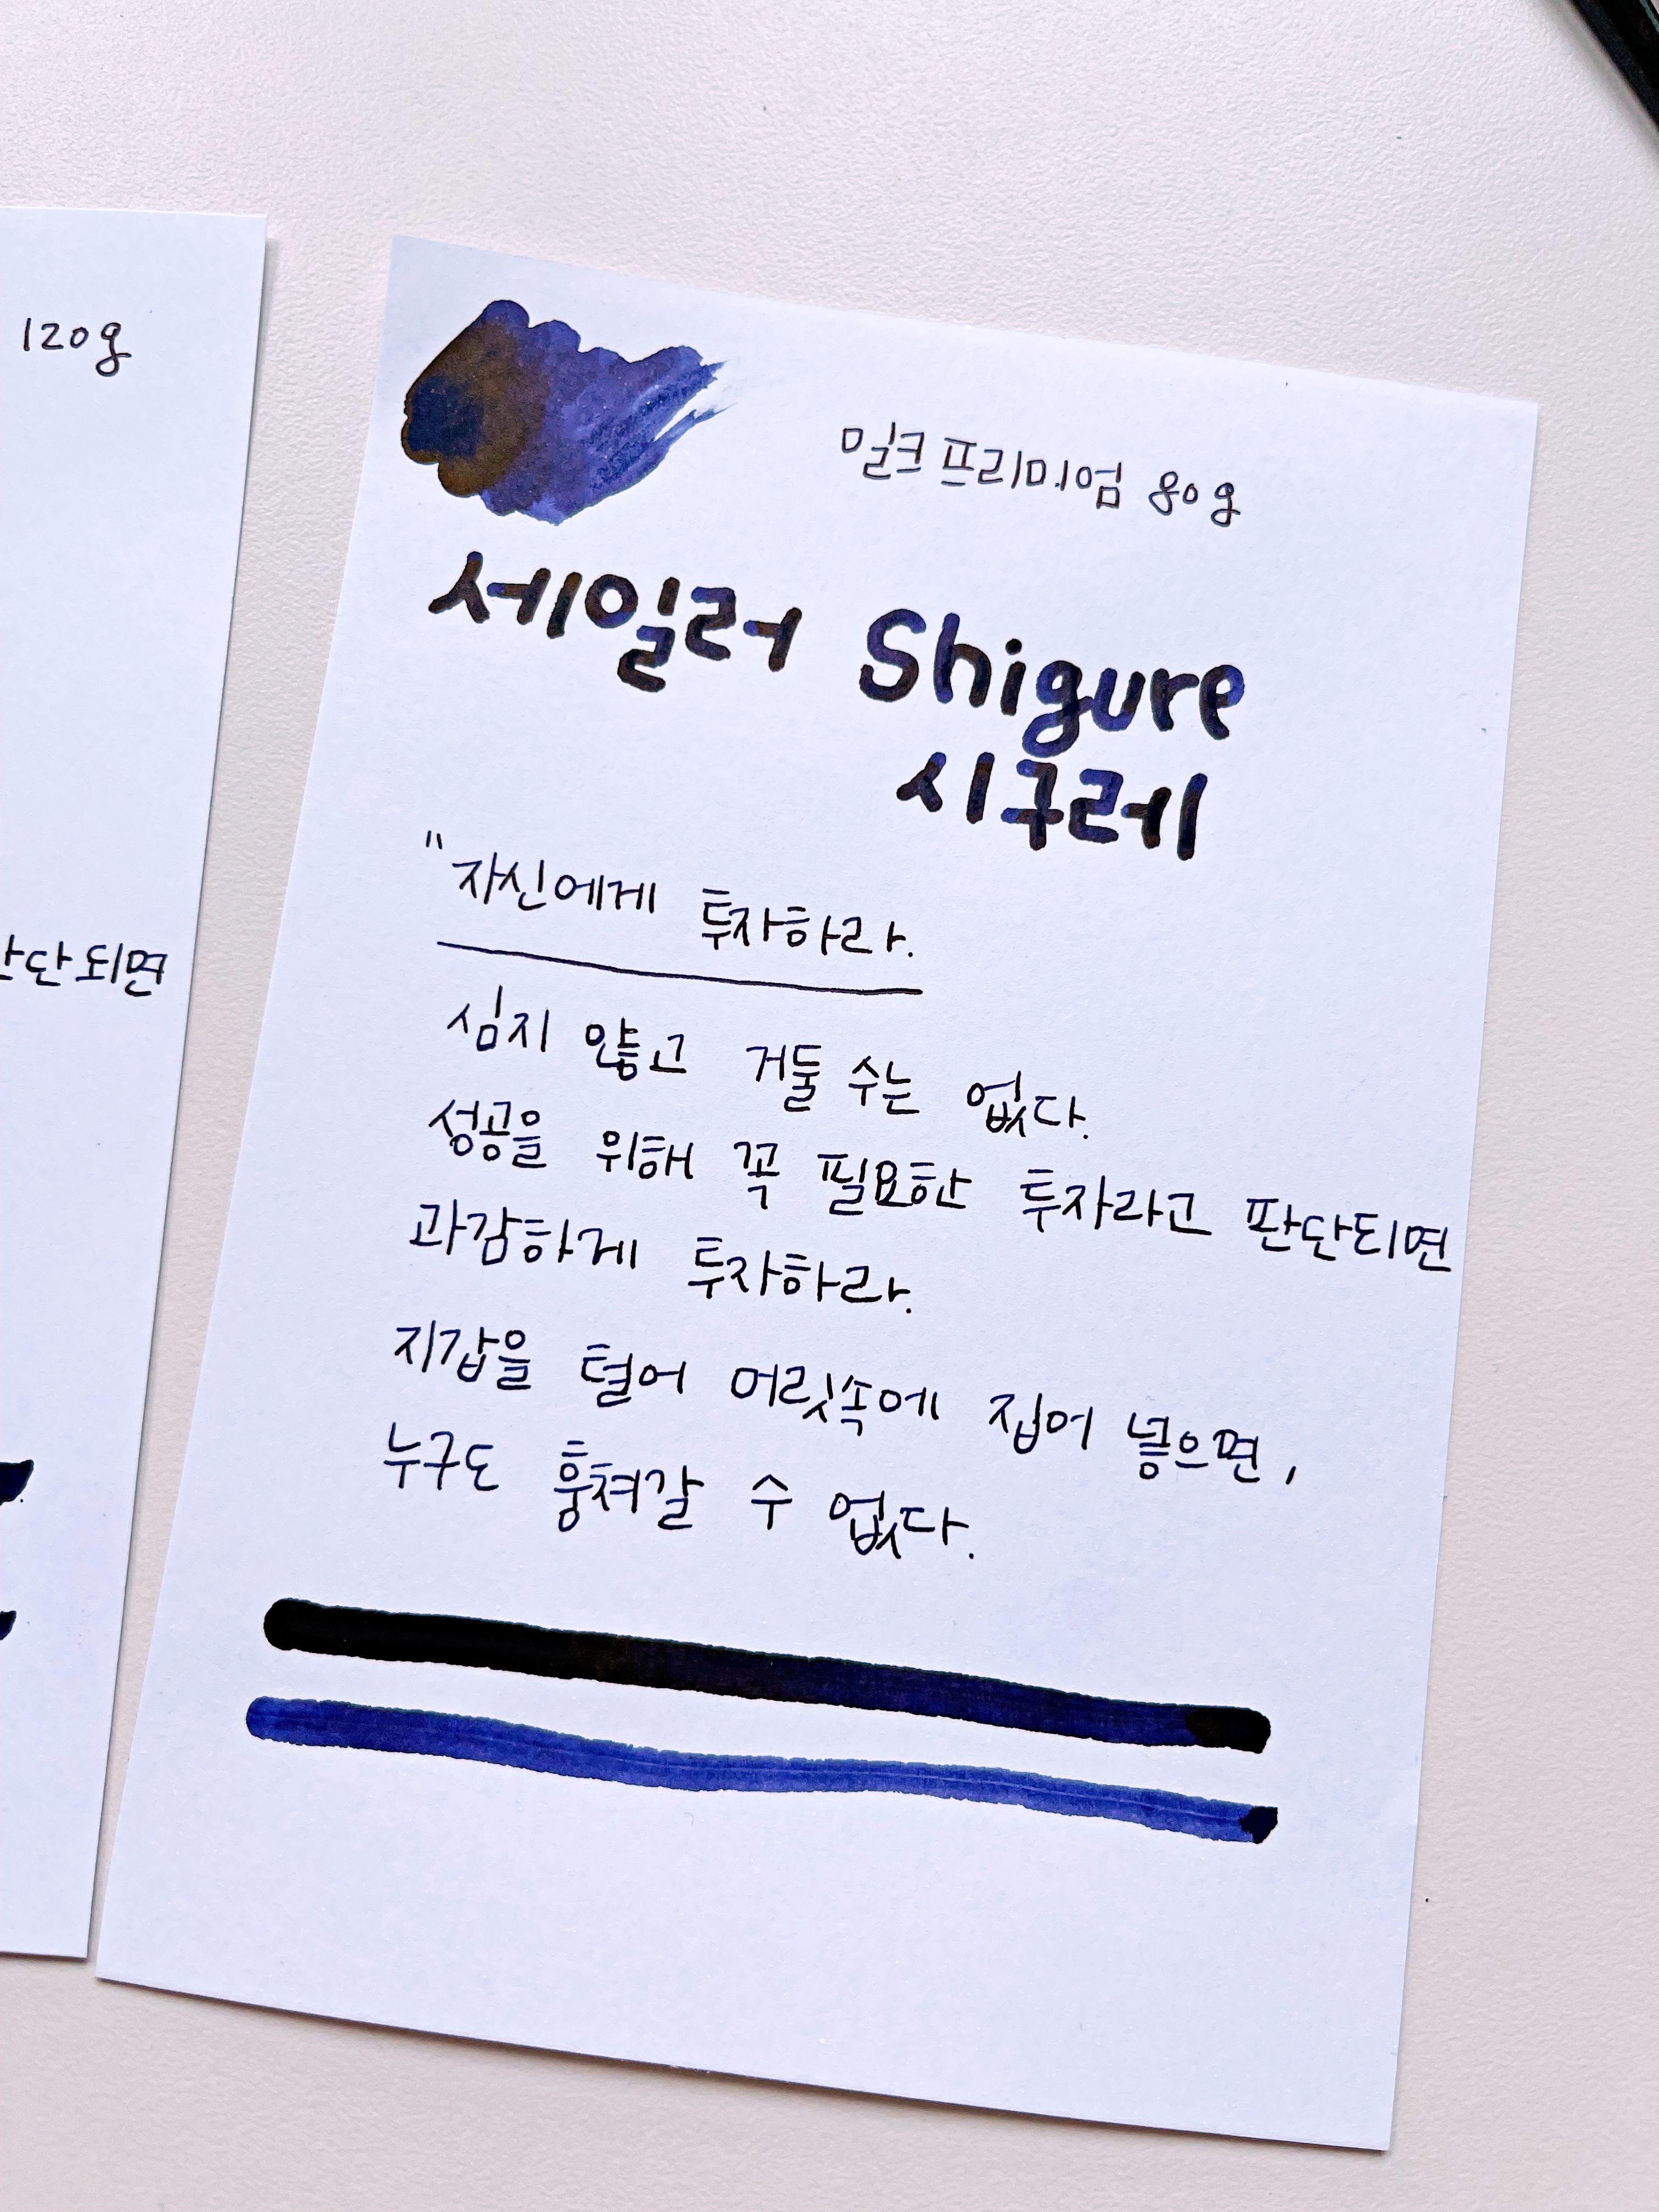 120g
단되면
밀크 프리미엄 80g
세일러 Shigure
시구레
"자신에게 투자하라.
심지 않고 거둘 수는 없다.
성공을 위해 꼭 필요한 투자라고 판단되면
과감하게 투자하라.
지갑을 털어 머릿속에 집어 넣으면,
누구도 훔쳐갈 수 없다.